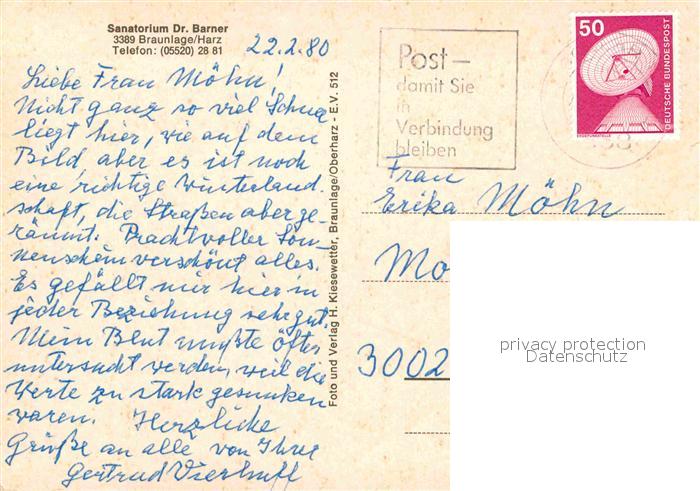 Sanatorium Dr. Barner
3389 Braunlage/Harz
Telefon: (05520) 28 81
22.2.80
Liebe Frau Möhn!
Nicht ganz so viel Schnee
liegt hier, wie auf dem
Bild, aber es ist noch
eine richtige Winterland-
schaft, die Straßen aber ge-
räumt. Prachtvoller Son-
nenschein verschönt alles.
Es gefällt mir hier in
jeder Beziehung sehr gut.
Mein Blut mußte öfter
untersucht werden, weil die
Werte zu stark gesunken
waren. Herzliche
Grüße an alle von Ihrer
Gertrud Vierhuff
Foto und Verlag H. Kiesewetter, Braunlage/Oberharz - E.V. 512
Post –
damit Sie
in
Verbindung
bleiben
50
DEUTSCHE BUNDESPOST
ERDEFUNKSTELLE
Frau
Erika Möhn
Mo
3002
privacy protection
Datenschutz